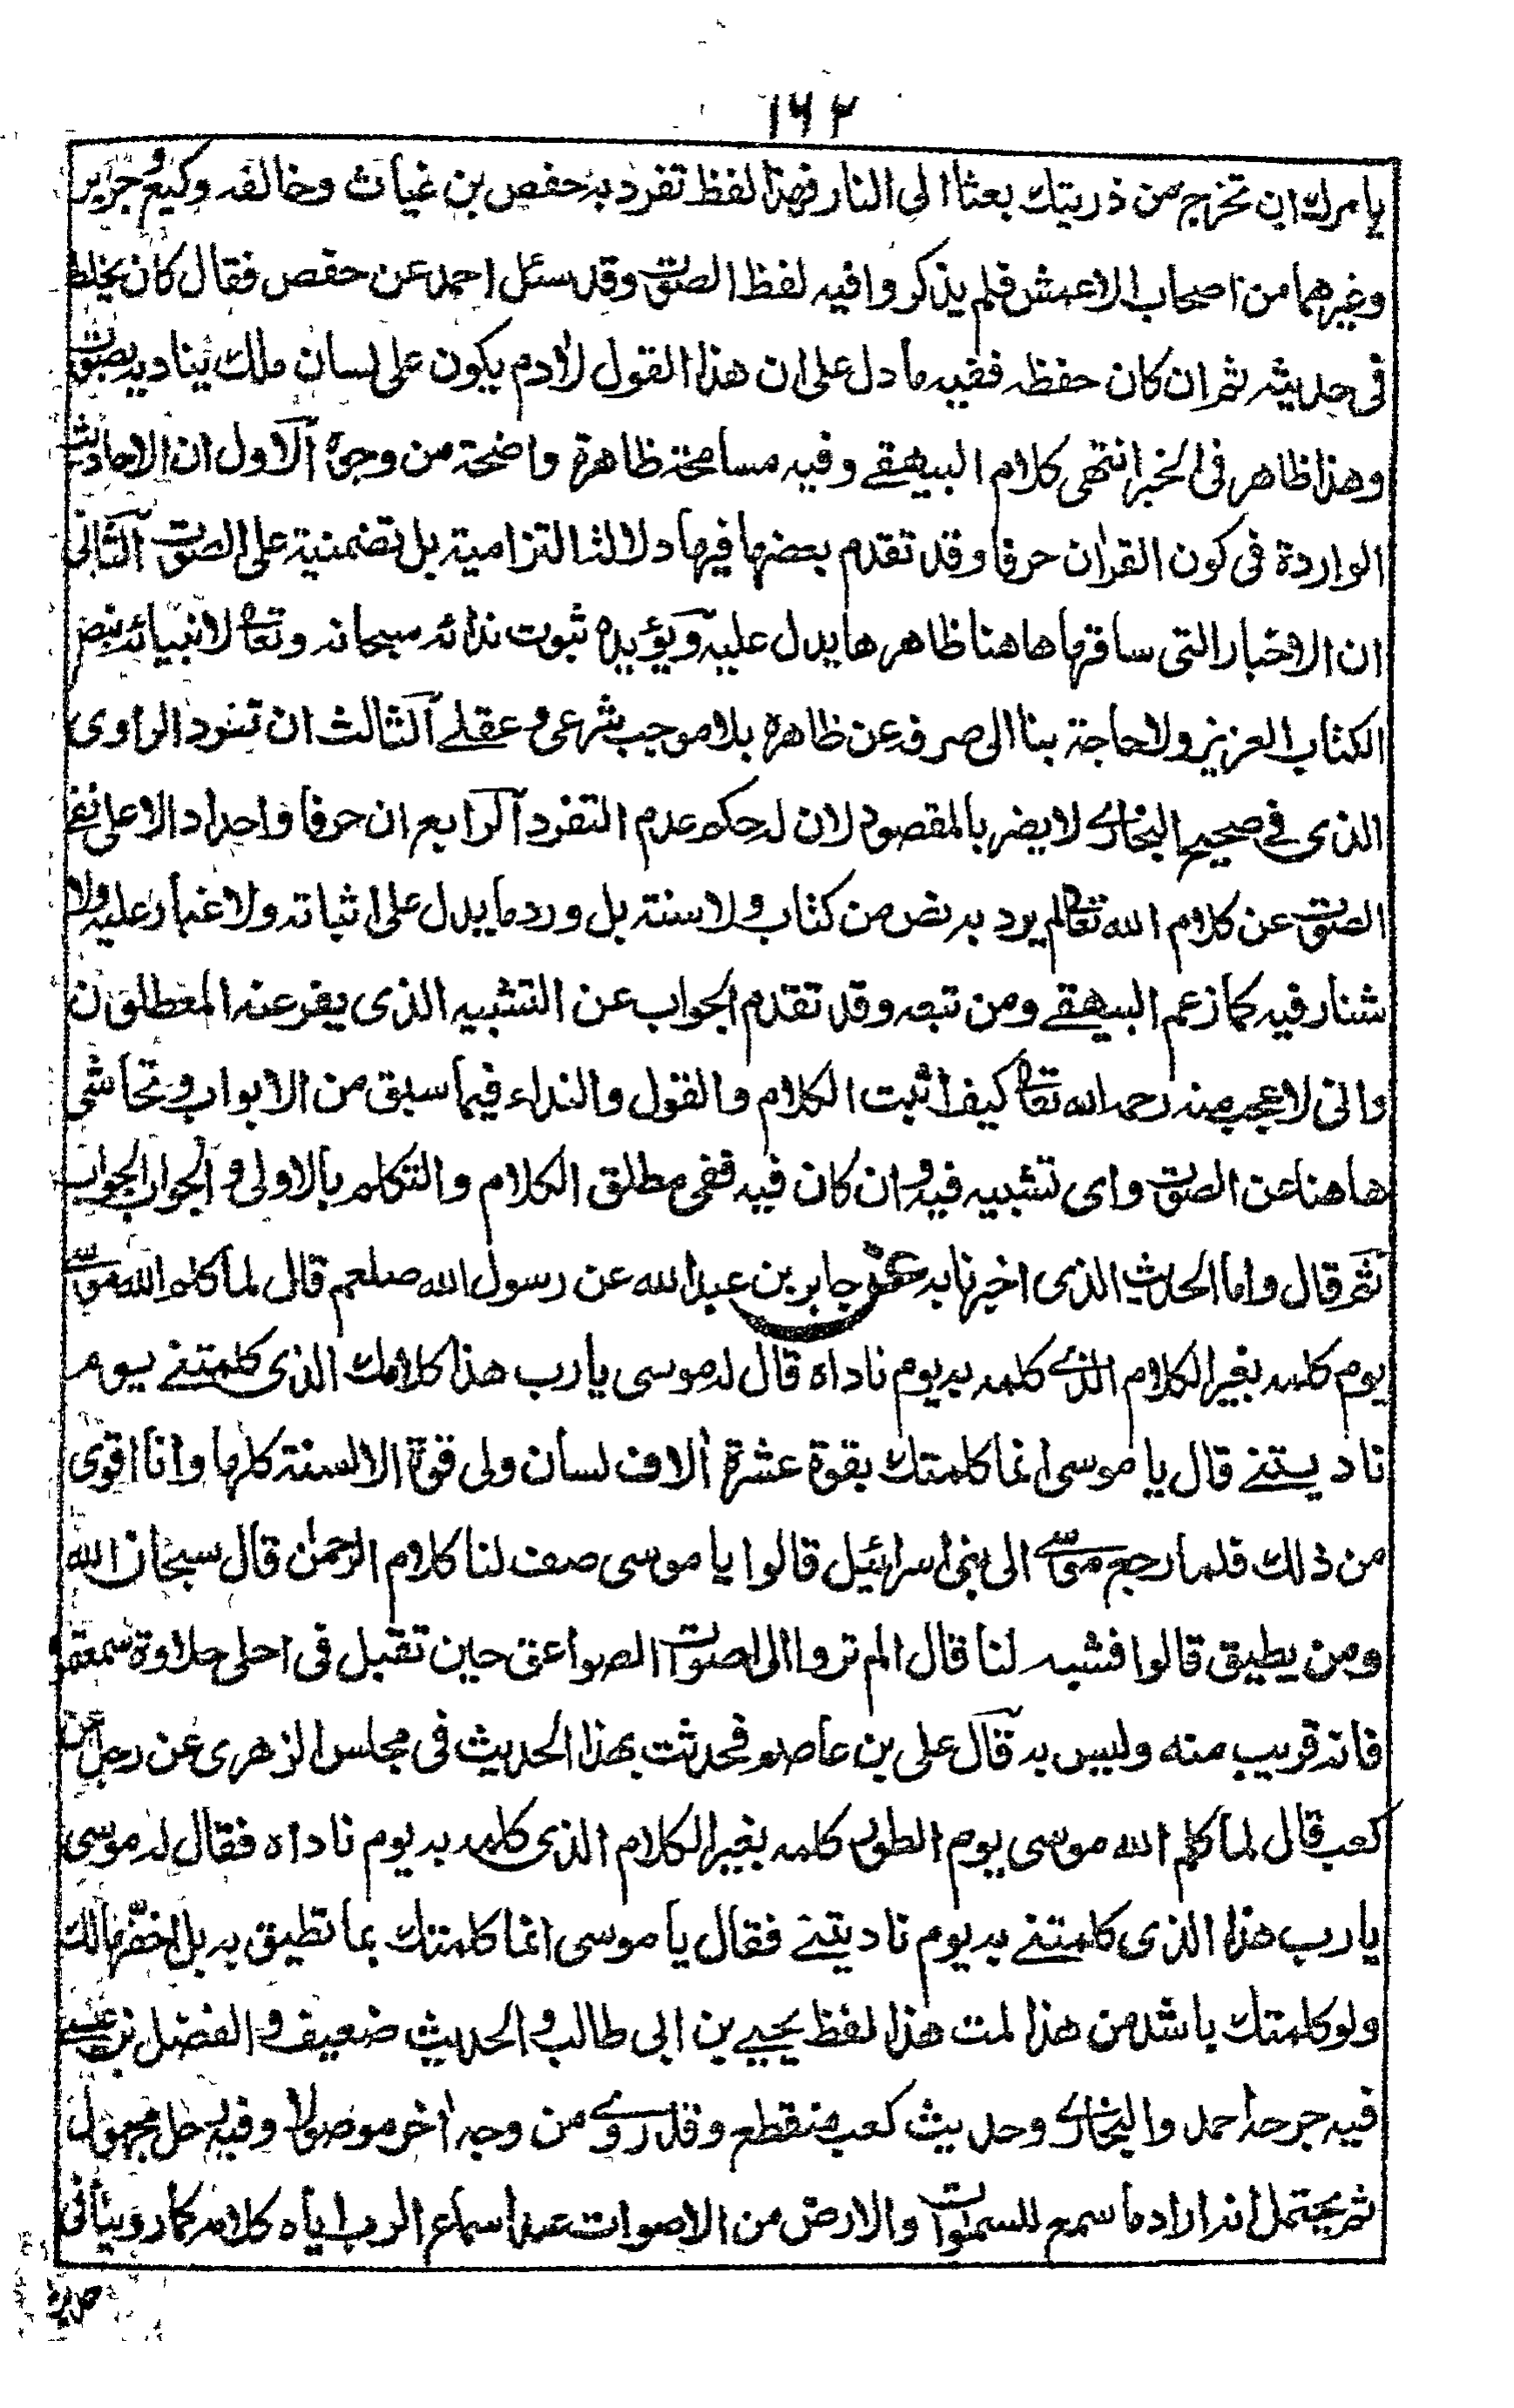 ١٦٢
يامرك ان تخرج من ذريتك بعثا الى النار فهذا لفظ تفرد به حفص بن غياث وخالفه وكيع وجرير
وغيرهما من اصحاب الاعمش فلم يذكروا فيه لفظ الصوت وقد سئل احمد عن حفص فقال كان يخلط
فى حديثه ثم ان كان حفظه ففيه ما دل على ان هذا القول لادم يكون على لسان ملك يناديه بصوت
وهذا ظاهر فى الخبر انتهى كلام البيهقے وفيه مسامحة ظاهرة واضحة من وجوه الاول ان الاحاديث
الواردة فى كون القران حرفا وقد تقدم بعضها فيها دلالة التزامية بل تضمنية على الصوت الثانى
ان الاخبار التى ساقها هاهنا ظاهرها يدل عليه ويؤيده ثبوت ندائه سبحانه وتعالى لانبيائه بنص
الكتاب العزيز ولا حاجة بنا الى صرفه عن ظاهره بلا موجب شرعى وعقلے الثالث ان تفرد الراوى
الذى فے صحيح البخارے لا يضر بالمقصود لان له حكم عدم التفرد الرابع ان حرفا واحدا دالا على نفے
الصوت عن كلام الله تعالى لم يرد به نص من كتاب ولا سنة بل ورد ما يدل على اثباته ولا غبار عليه ولا
شنار فيه كما زعم البيهقے ومن تبعه وقد تقدم الجواب عن التشبيه الذى يفر عنه المعطلون
وانى لاعجب منه رحمه الله تعالى كيف اثبت الكلام والقول والنداء فيما سبق من الابواب وتحاشى
هاهنا عن الصوت واى تشبيه فيه وان كان فيه ففى مطلق الكلام والتكلم بالاولى و الجواب الجواب
ثم قال واما الحديث الذى اخبرنا به عن جابر بن عبد الله عن رسول الله صلعم قال لما كلم الله موسى
يوم كلمه بغير الكلام الذى كلمه به يوم ناداه قال له موسى يا رب هذا كلامك الذى كلمتنے يوم
ناديتنے قال يا موسى انما كلمتك بقوة عشرة الاف لسان ولى قوة الالسنة كلها وانا اقوى
من ذلك فلما رجع موسى الى بنى اسرائيل قالوا يا موسى صف لنا كلام الرحمن قال سبحان الله
ومن يطيق قالوا فشبه لنا قال الم تروا الى اصوات الصواعق حين تقبل فى احلى حلاوة سمعتموه
فانه قريب منه وليس به قال على بن عاصم فحدثت بهذا الحديث فى مجلس الزهرى عن رجل عن
كعب قال لما كلم الله موسى يوم الطور كلمه بغير الكلام الذى كلمه به يوم ناداه فقال له موسى
يا رب هذا الذى كلمتنے به يوم ناديتنے فقال يا موسى انما كلمتك بما تطيق به بل اخفها لك
ولو كلمتك باشد من هذا لمت هذا لفظ يحيى بن ابى طالب و الحديث ضعيف و الفضل بن عيسى
فيه جرحه احمد والبخارے وحديث كعب منقطع وقد روے من وجه اخر موصولا وفيه رجل مجهول
ثم يحتمل انه اراد ما سمع للسموات والارض من الاصوات عند اسماع الرب اياه كلامه كما روينا فى
حديث